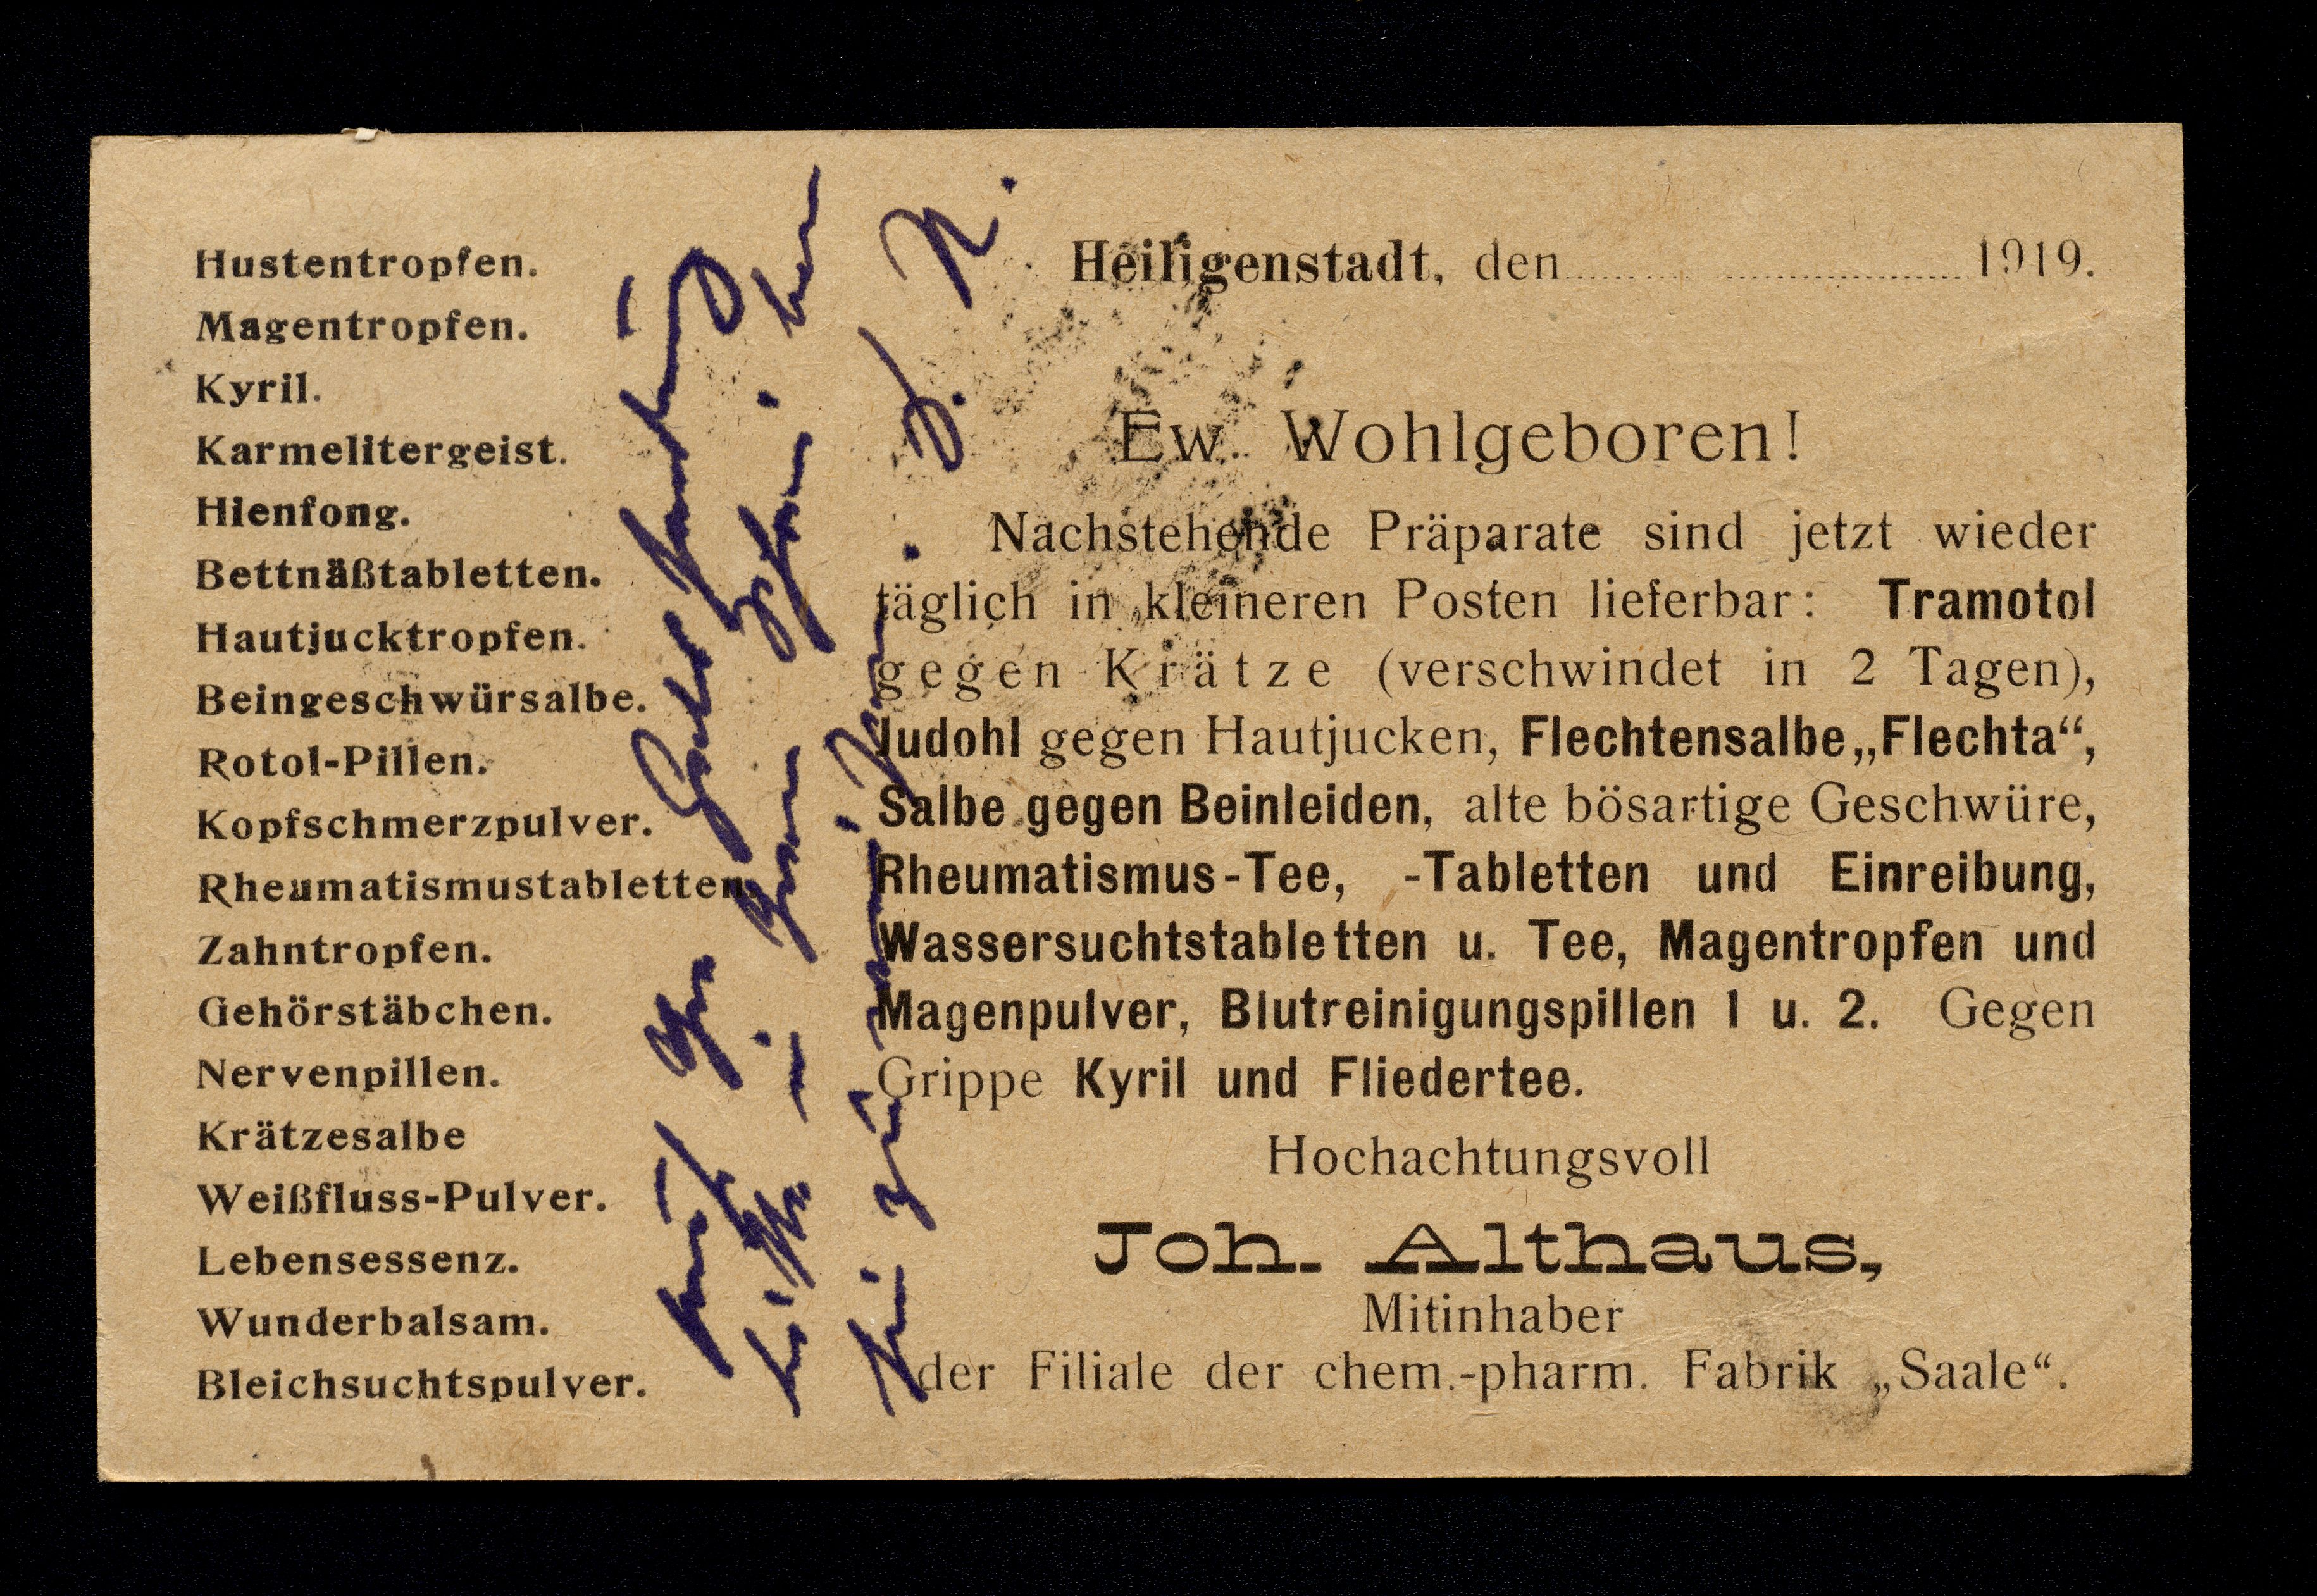 Hustentropfen.
Magentropfen.
Kyril.
Karmelitergeist.
Hienfong.
Bettnäßtabletten.
Hautjucktropfen.
Beingeschwürsalbe.
Rotol-Pillen.
Kopfschmerzpulver.
Rheumatismustabletten.
Zahntropfen.
Gehörstäbchen.
Nervenpillen.
Krätzesalbe
Weißfluss-Pulver.
Lebensessenz.
Wunderbalsam.
Bleichsuchtspulver.
Heiligenstadt, den 1919.
Ew. Wohlgeboren!
Nachstehende Präparate sind jetzt wieder
täglich in kleineren Posten lieferbar: Tramotol
gegen Krätze (verschwindet in 2 Tagen),
Judohl gegen Hautjucken, Flechtensalbe „Flechta“,
Salbe gegen Beinleiden, alte bösartige Geschwüre,
Rheumatismus-Tee, -Tabletten und Einreibung,
Wassersuchtstabletten u. Tee, Magentropfen und
Magenpulver, Blutreinigungspillen 1 u. 2. Gegen
Grippe Kyril und Fliedertee.
Hochachtungsvoll
Joh. Althaus,
Mitinhaber
der Filiale der chem.-pharm. Fabrik „Saale“.